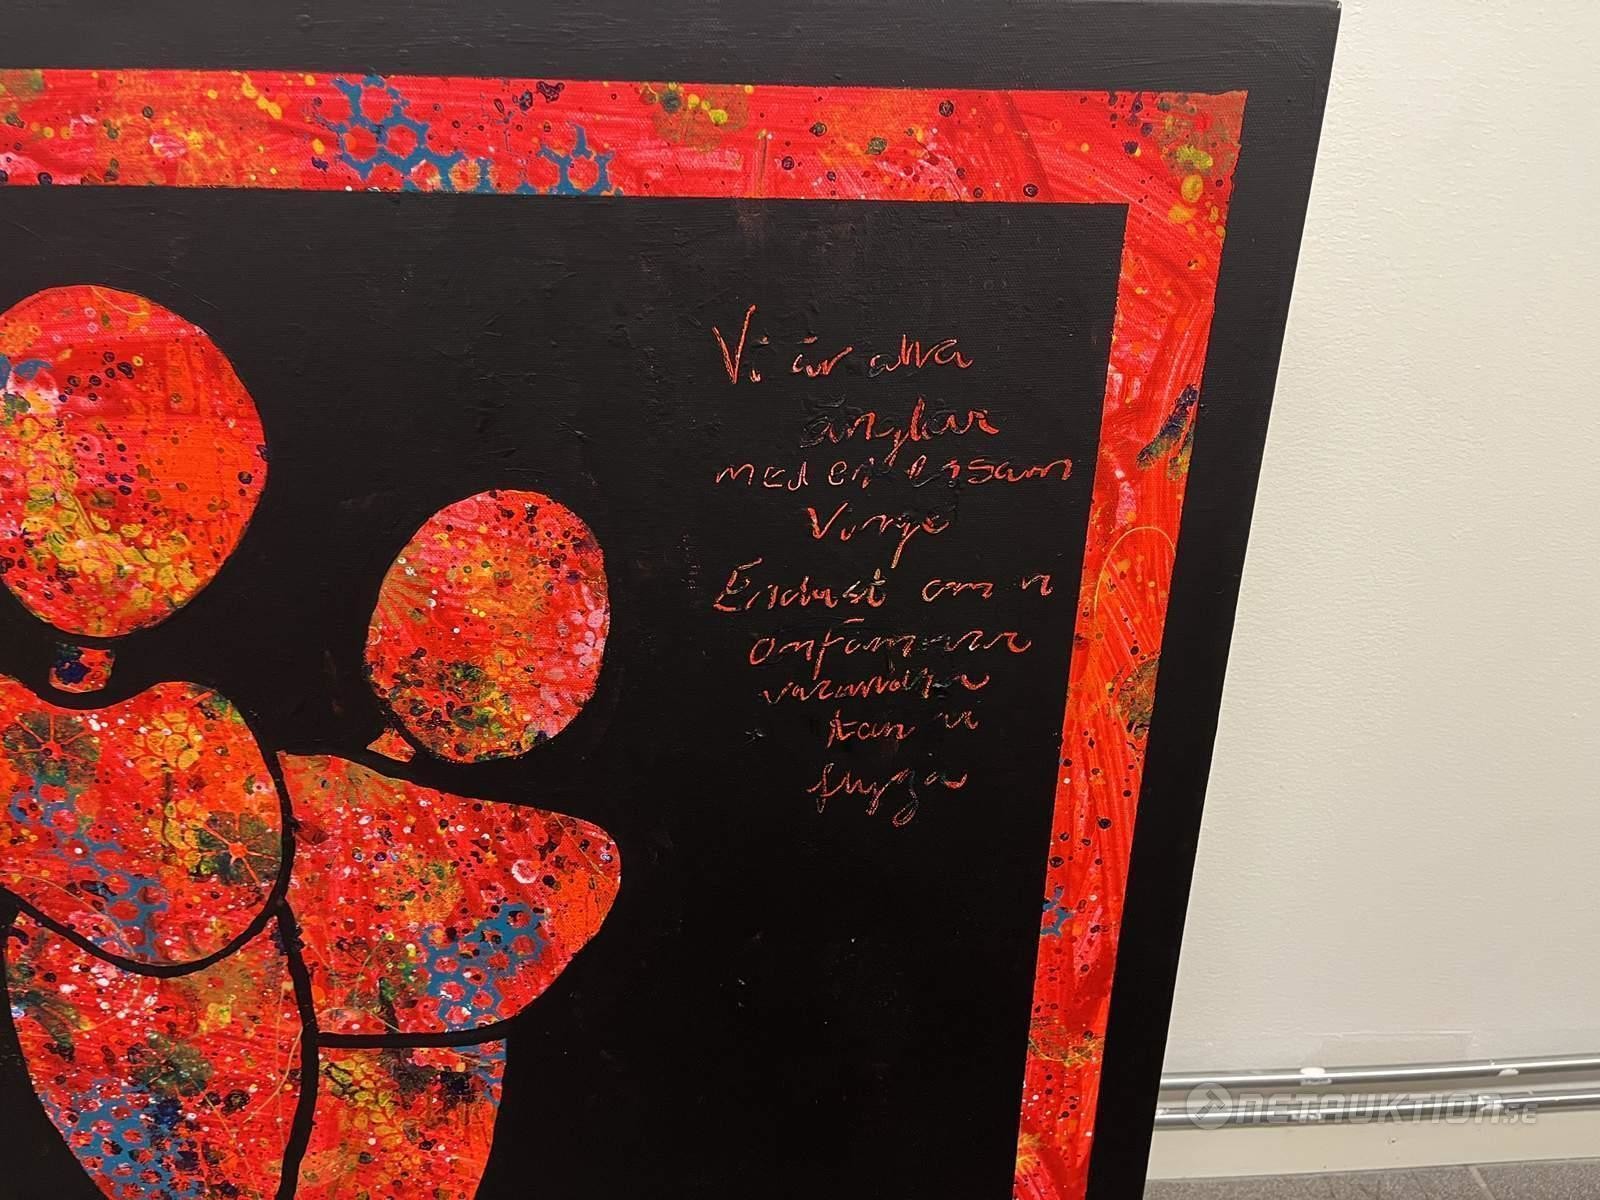 Vi är alla
änglar
med en ensam
Vinge
Endast om vi
omfamnar
varandra
kan vi
flyga
NETAUKTION.SE